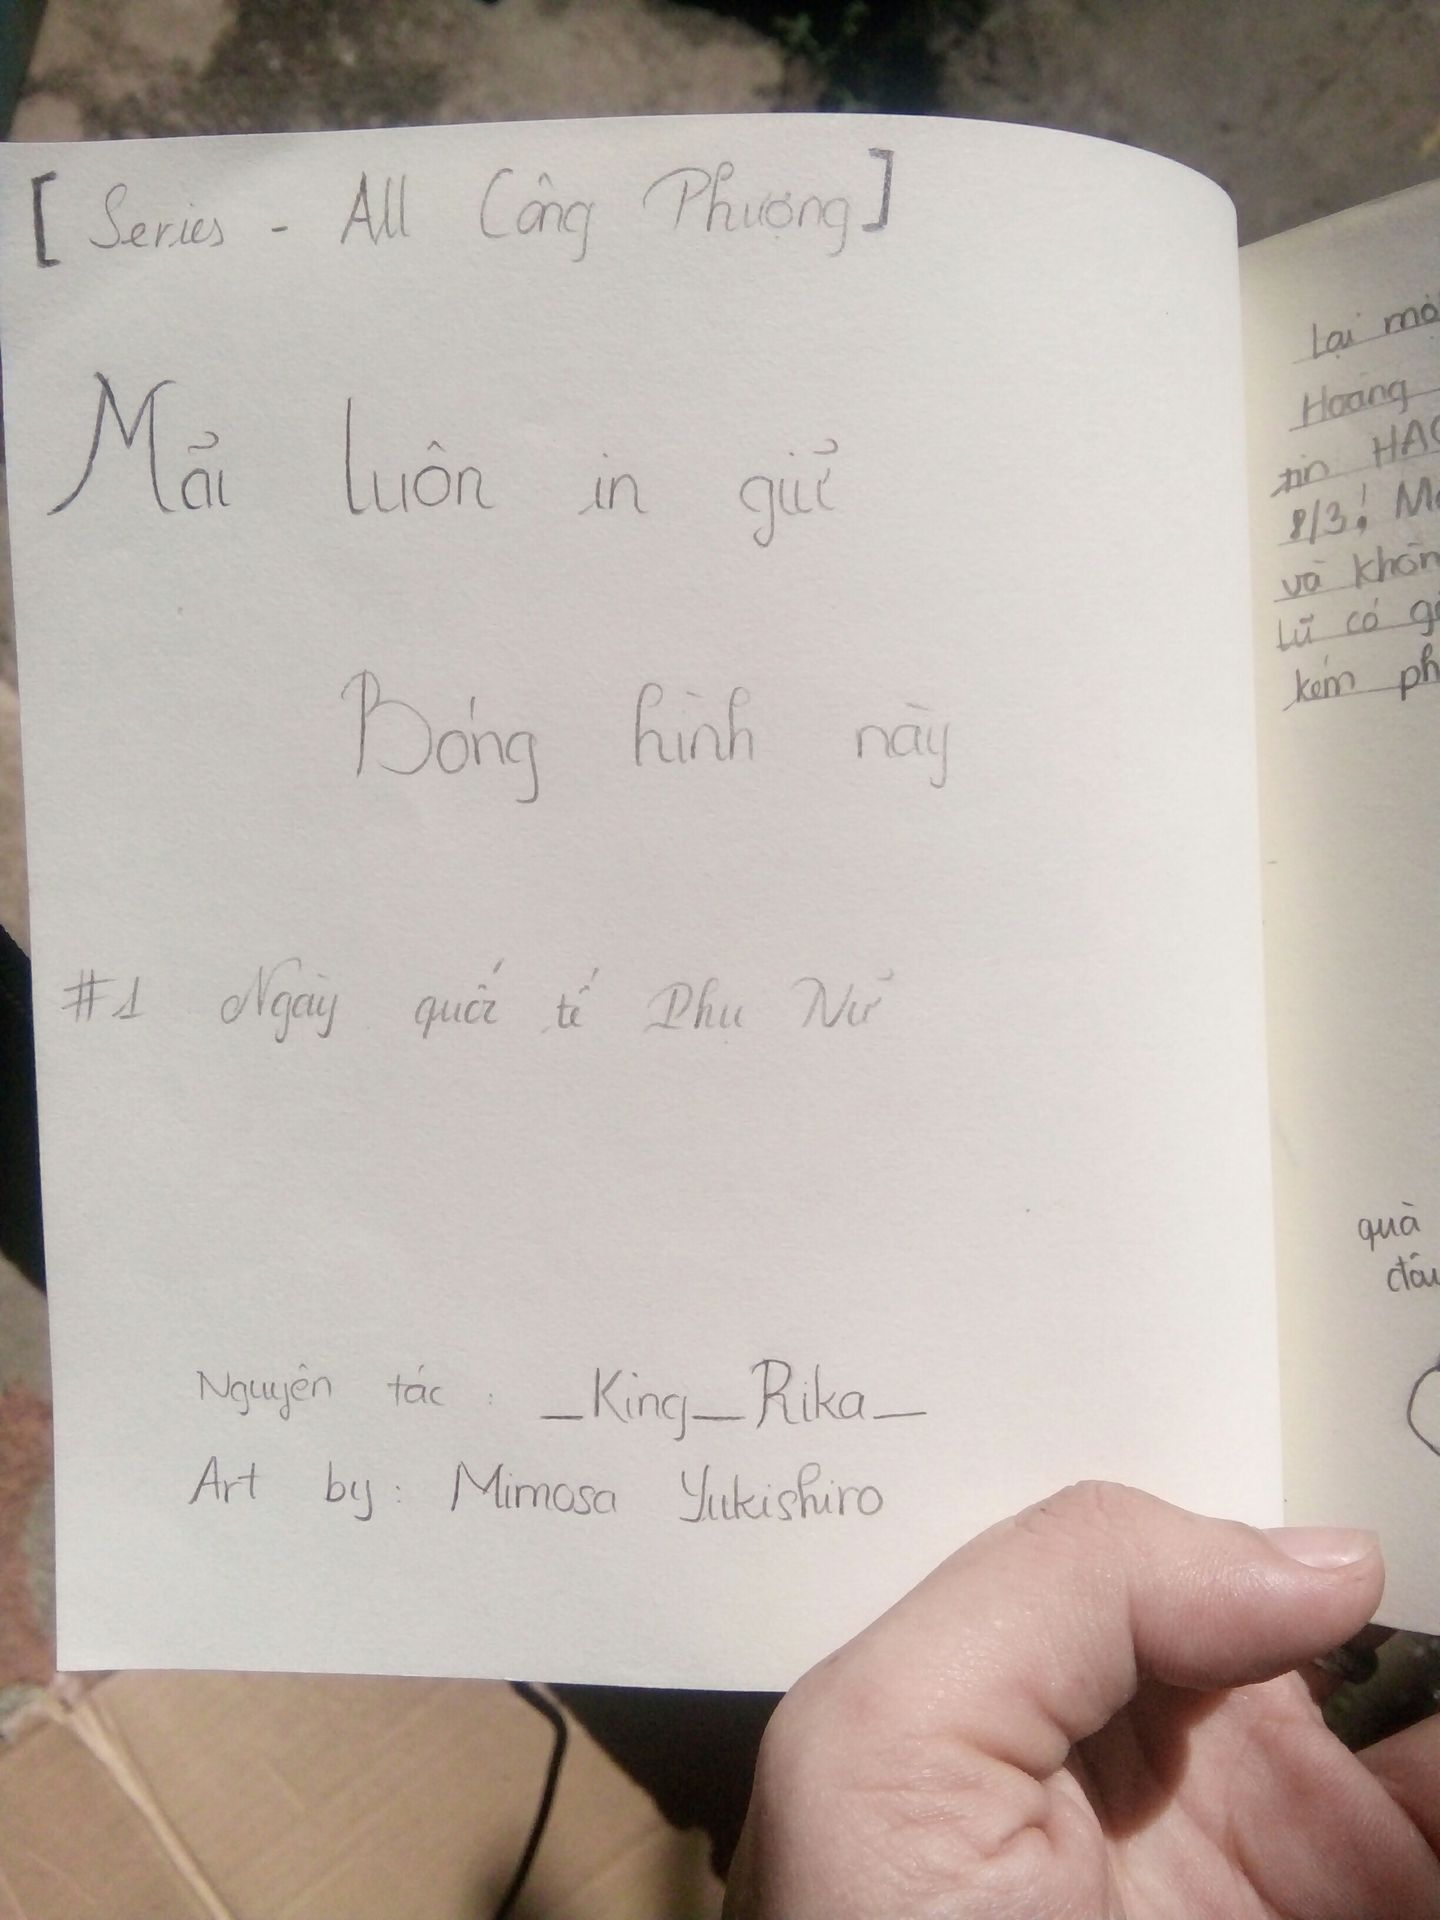 [ Series - All Công Phượng ]
Mãi luôn in giữ
Bóng hình này
#1 Ngày quốc tế Phu Nữ
Nguyên tác : _King_Rika_
Art by: Mimosa Yukishiro
lại
Hoàng
tin
8/3!
và
Lũ có
kém
quà